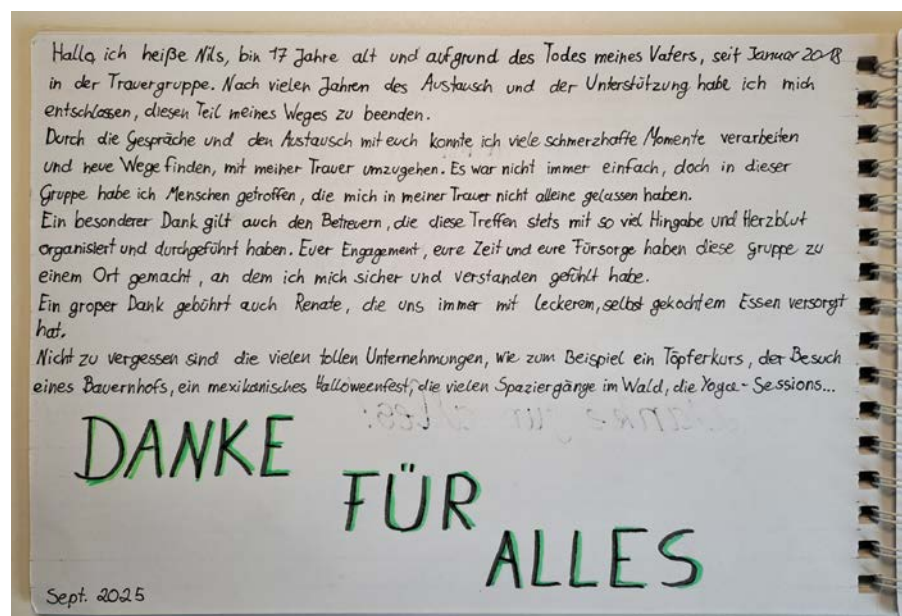 Hallo, ich heiße Nils, bin 17 Jahre alt und aufgrund des Todes meines Vaters, seit Januar 2018
in der Trauergruppe. Nach vielen Jahren des Austausch und der Unterstützung habe ich mich
entschlossen, diesen Teil meines Weges zu beenden.
Durch die Gespräche und den Austausch mit euch konnte ich viele schmerzhafte Momente verarbeiten
und neue Wege finden, mit meiner Trauer umzugehen. Es war nicht immer einfach, doch in dieser
Gruppe habe ich Menschen getroffen, die mich in meiner Trauer nicht alleine gelassen haben.
Ein besonderer Dank gilt auch den Betreuern, die diese Treffen stets mit so viel Hingabe und Herzblut
organisiert und durchgeführt haben. Euer Engagement, eure Zeit und eure Fürsorge haben diese Gruppe zu
einem Ort gemacht, an dem ich mich sicher und verstanden gefühlt habe.
Ein großer Dank gebührt auch Renate, die uns immer mit leckerem, selbst gekochtem Essen versorgt
hat.
Nicht zu vergessen sind die vielen tollen Unternehmungen, wie zum Beispiel ein Töpferkurs, der Besuch
eines Bauernhofs, ein mexikanisches Halloweenfest, die vielen Spaziergänge im Wald, die Yoga-Sessions...
DANKE
FÜR
ALLES
Sept. 2025